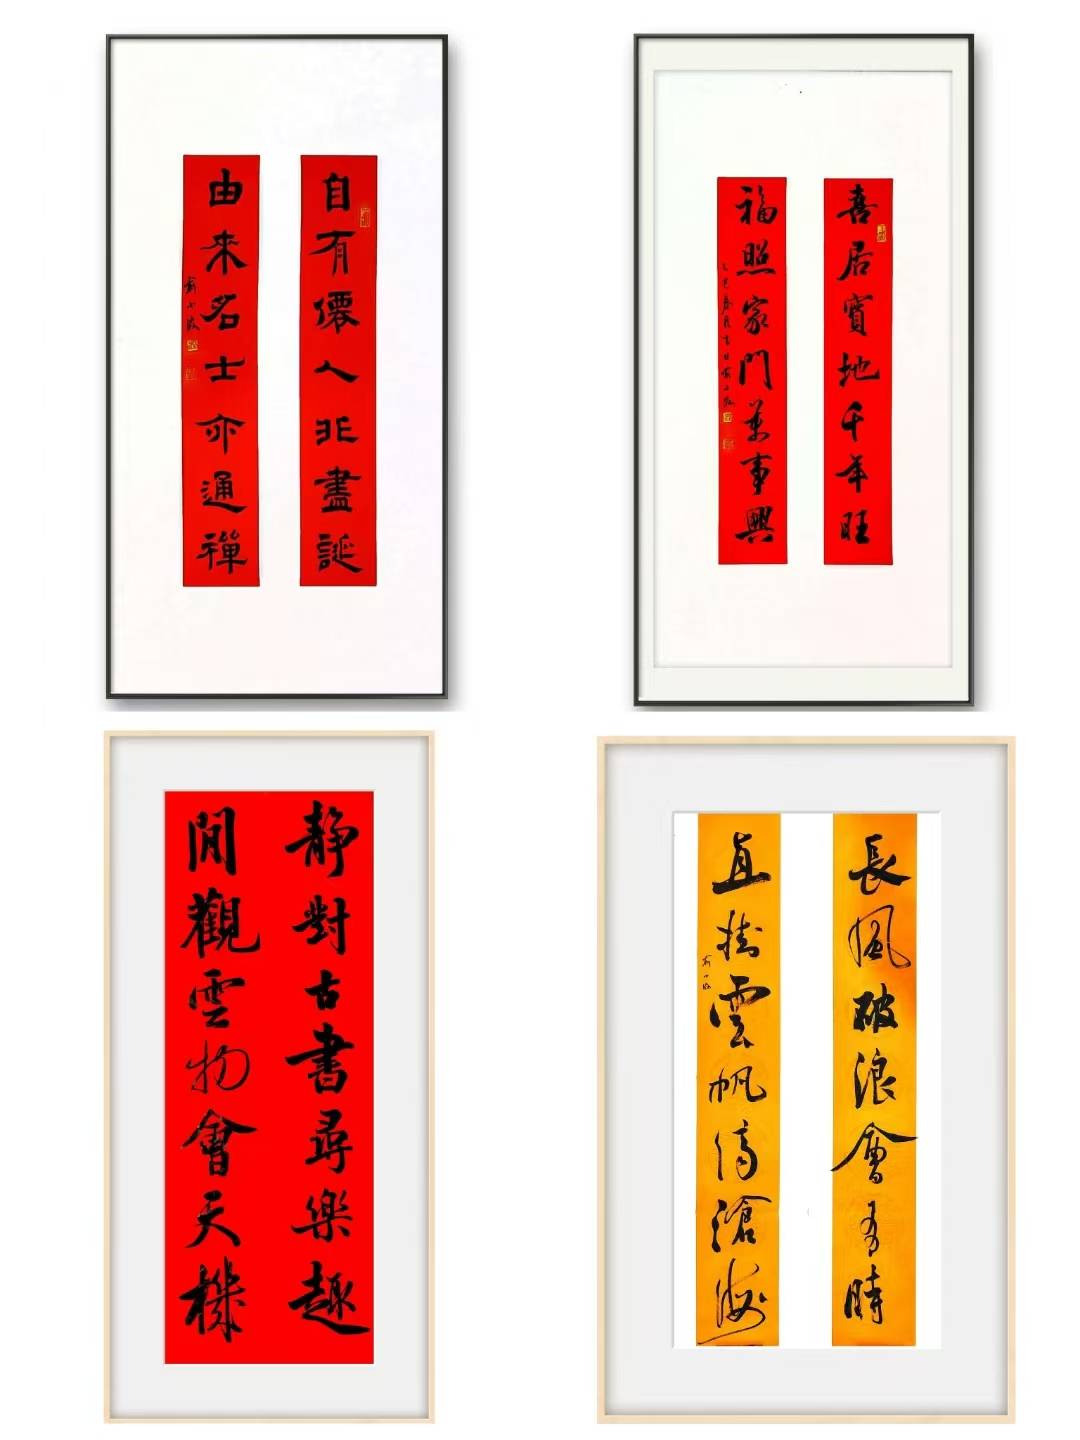 自有僊人非盡誕
由來名士亦通禪
喜居寶地千年旺
福照家門萬事興
静對古書尋樂趣
閒觀雲物會天機
長風破浪會有時
直掛雲帆濟滄海